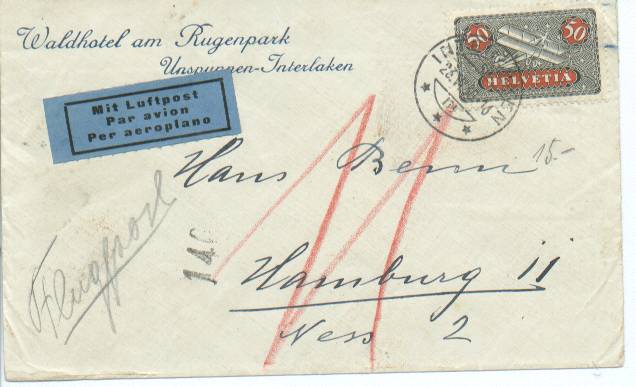 Waldhotel am Rugenpark
Unspunnen-Interlaken
50 50
HELVETIA
Mit Luftpost
Par avion
Per aeroplano
Hans Benn
15.-
Flugpost
140
Hamburg 11
Ness 2